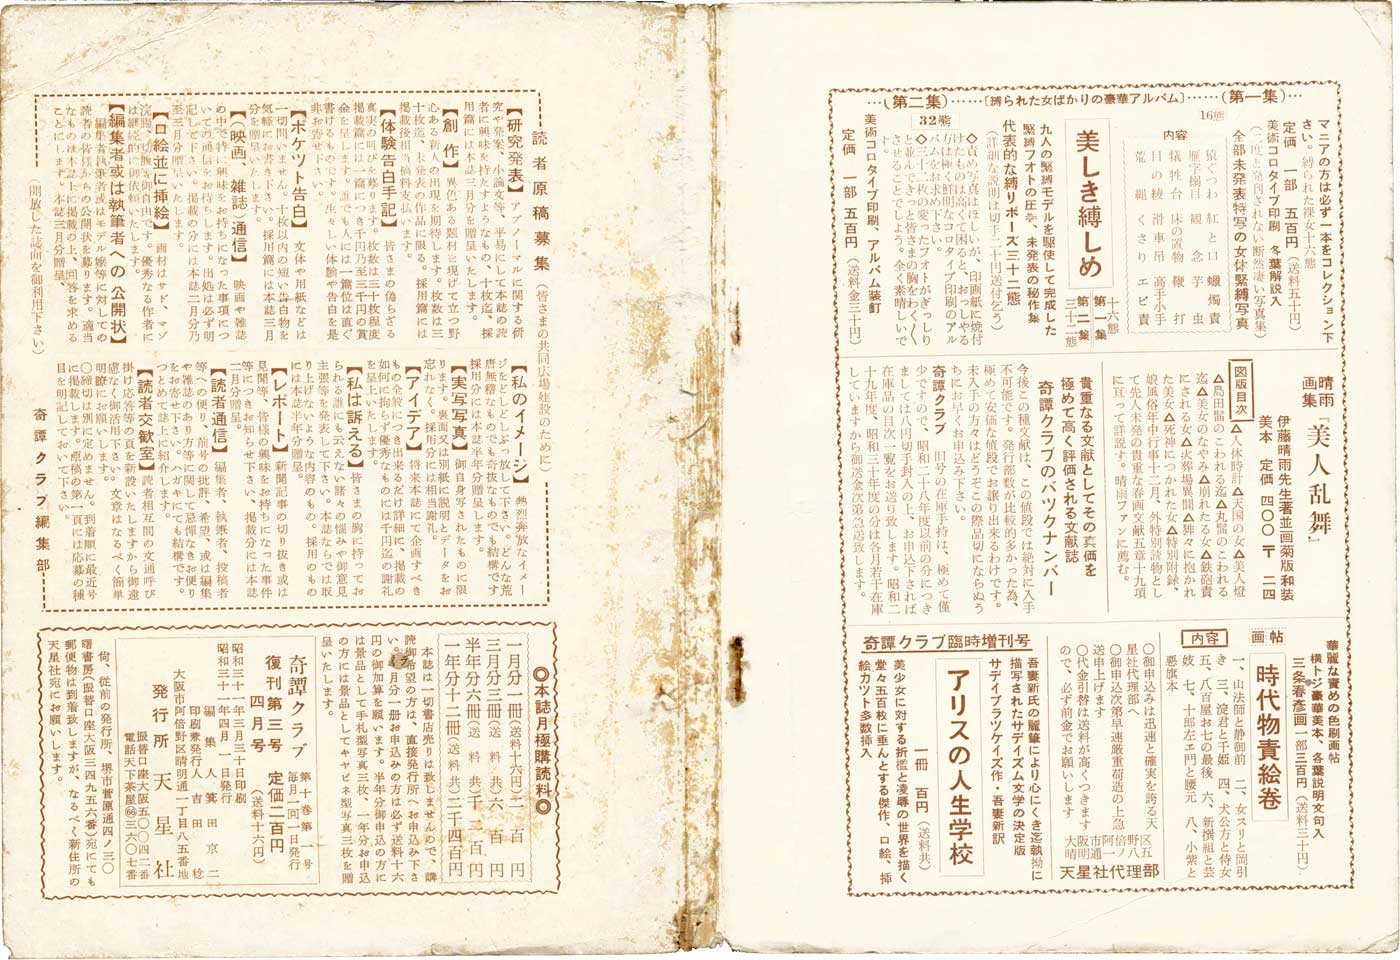 …（第一集）……〔縛られた女ばかりの豪華アルバム〕……（第二集）…
マニアの方は必ず一本をコレクション下
さい。縛られた裸女十六態
定価　一部　五百円（送料五十円）
美術コロタイプ印刷　各葉解説入
（二度と発刊されない断然凄い写真集）
全部未発表特写の女体緊縛写真
16態
内容
猿ぐつわ　紅と口　蠟燭責
雁字搦目　観念　芋虫
犠牲台　床の置物　鞭打
日の綾　滑車吊　高手小手
荒縄　くさり　エビ責
美しき縛しめ
第一集　十六態
第二集　三十二態
九人の緊縛モデルを駆使して完成した
緊縛フオトの圧巻、未発表の秘作集
代表的な縛りポーズ三十二態
（詳細な説明は切手二十円送付乞う）
32態
◇責め写真はほしいが、印画紙に焼付
けたものは高くて困ると、おっしやる
方は極く鮮明なコロタイプ印刷のアル
バムをお求め下さい。
◇三十二枚の変ったフオトがぎっしり
と並んできっと皆さまの胸をわくわく
させることでしよう。全く素晴しいで
す。
美術コロタイプ印刷、アルバム装釘
定価　一部　五百円（送料金三十円）
晴雨画集『美人乱舞』
伊藤晴雨先生著並画菊版和装
美本　定価　四〇〇　〒　二四
図版目次
△人体時計△天国の女△美人燈
△島田髷のこわれる迄△丸髷のこわれる
迄△美女のなやみ△崩れたる女△鉄砲責
にされる女△火葬場異聞△狒々に抱かれ
た美女△死神につかれた女△特別附録、
娘風俗年中行事十二月、外特別読物とし
て先人未発の貴重な春画文献五章十九項
に亘って詳説。晴雨ファンに薦む。
貴重なる文献としてその真価を
極めて高く評価される文献誌
奇譚クラブのバックナンバー
今後この種文献は、この値段では絶対に入手
不可能です。発行部数が比較的多かった為、
極めて安価な値段でお譲り出来るわけです。
未入手の方々はどうぞこの際品切にならぬう
ちにお早くお申込み下さい。
奇譚クラブ　旧号の在庫手持は、極めて僅
少ですので、昭和二十八年度以前の分につき
ましては八円切手封入の上、お申込下されば
在庫品の目次一覧をお送り致します。昭和二
十九年度、昭和三十年度の分は各月若干在庫
していますから御送金次第急送致します。
華麗な責めの色刷画帖
横トジ豪華美本、各葉説明文句入
三条春彦画一部三百円（送料三十円）
画帖　時代物責絵巻
内容
一、山法師と静御前　二、女スリと岡引
き　三、淀君と千姫　四、犬公方と侍女
五、八百屋お七の最後　六、新撰組と芸
妓　七、十郎左ェ門と腰元　八、小紫と
悪旗本
〇御申込みは迅速と確実を誇る天
星社代理部へ
〇御申込次第早速厳重荷造の上急
送申上げます
〇代金引替は送料が高くつきます
ので、必ず前金でお願いします
大阪市阿倍野区
晴明通一ノ八五
天星社代理部
奇譚クラブ臨時増刊号
吾妻新氏の麗筆により心にくき迄執拗に
描写されたサデイズム文学の決定版
サデイブラツケイズ作・吾妻新訳
アリスの人生学校
一冊　百円（送料共）
美少女に対する折檻と凌辱の世界を描く
堂々五百枚に垂んとする傑作、口絵、挿
絵カツト多数挿入
読者原稿募集（皆さまの共同広場建設のために）
【研究発表】アブノーマルに関する研
究や発案、小論文等、平易にして本誌の読
者に興味を持たすようなもの、十枚迄、採
用篇には本誌三月分を贈呈します。
【創作】異色ある題材を現げて立つ野
心ある新人の出現を期待します。枚数は三
十枚迄、未発表の作品に限る。採用篇には
掲載後相当稿料支払います。
【体験告白手記】皆さまの偽らざる
真実の叫びを募ります。枚数は三十枚程度
掲載篇には一篇につき千円乃至三千円の賞
金を呈します。誰でも人には一篇位は直ぐ
書けるものです。生々しい体験や告白を是
非お寄せ下さい。
【ポケツト告白】文体や用紙などは
一切問いません。十枚以内の短い告白物を
気軽にお書き下さい。採用篇には本誌三月
分を贈呈いたします。
【（映画、雑誌）通信】映画や雑誌
の中で特に興味をお持ちになった事項につ
いての通信をお待ちします。出処は必ず明
記して下さい。掲載の分には本誌二月分乃
至三月分贈呈いたします。
【口絵並に挿絵】画材はサド、マゾ
浣腸、切腹等御自由です。優秀なる作者に
は継続的に御依頼いたします。
【編集者或は執筆者への公開状】
編集者執筆者或はモデル嬢等に対しての
読者の皆様からの公開状を募ります。適当
なものは本誌上に掲載の上、回答を求める
ことにします。本誌三月分贈呈、
【私のイメージ】熱烈奔放なイメー
ジをどしどしぶっ放して下さい。どんな荒
唐無稽なものでも奇抜なものでも結構です
採用分には本誌半年分贈呈します。
【実写写真】御自身写されたものに限
ります。裏面又は別紙に説明とデータをお
忘れなく。採用分には相当謝礼。
【アイデア】将来本誌にて企画すべき
もの全般につき出来るだけ詳細に、掲載の
如何に拘らず優秀なものには千円迄の謝礼
を呈上いたします。
【私は訴える】皆さまの胸に持ってお
られる誰にも云えない諸々の悩みや御意見
主張等を発表して下さい。本誌ならでは取
り上げないような内容のもの。採用のもの
には本誌半年分贈呈。
【レポート】新聞記事の切り抜き或は
見聞等、皆様の興味をお持ちになった事件
等につきお知らせ下さい。掲載分には本誌
二月分贈呈。
【読者通信】編集者、執筆者、投稿者
等への便り、前号の批評、希望、或は編集
や雑誌のあり方等に関して忌憚なきお便り
をお寄せ下さい。ハガキにても結構です。
つとめて誌上に紹介します。
【読者交歓室】読者相互間の文通呼び
掛け応答等の頁を新設いたしますから御遠
慮なく御活用下さい。文章はなるべく簡単
明瞭にお願いします。
〇締切は別に定めません。到着順に最近号
に掲載します。原稿の第一頁には応募の種
目を明記しておいて下さい。
（開放した誌面を御利用下さい）
奇譚クラブ編集部
◎本誌月極購読料◎
一月分一冊（送料十六円）二百円
三月分三冊（送料共）六百円
半年分六冊（送料共）千二百円
一年分十二冊（送料共）二千四百円
本誌は一切書店売りは致しませんので、購
読御希望の方は、直接発行所へお申込み下さ
い。一カ月分一冊お申込みの方は必ず送料十六
円の御加算を願います。半年分御申込の方に
は景品として手札型写真三枚、一年分お申込
の方には景品としてキャビネ型写真三枚を贈
呈いたします。
奇譚クラブ　第十巻第一号
毎月一回一日発行
復刊第三号　定価二百円
四月号　（送料十六円）
昭和三十一年三月三十日印刷
昭和三十一年四月一日発行
編集人　箕田京二
印刷兼発行人　吉田稔
大阪市阿倍野区晴明通一丁目八五番地
発行所　天星社
振替口座大阪五〇〇四二番
電話天下茶屋（66）三六〇七番
尚、従前の発行所、堺市菅原通四ノ三〇
曙書房（振替口座大阪三四九五六番）宛にても
郵便物は到着致しますが、なるべく新住所の
天星社宛にお願いします。